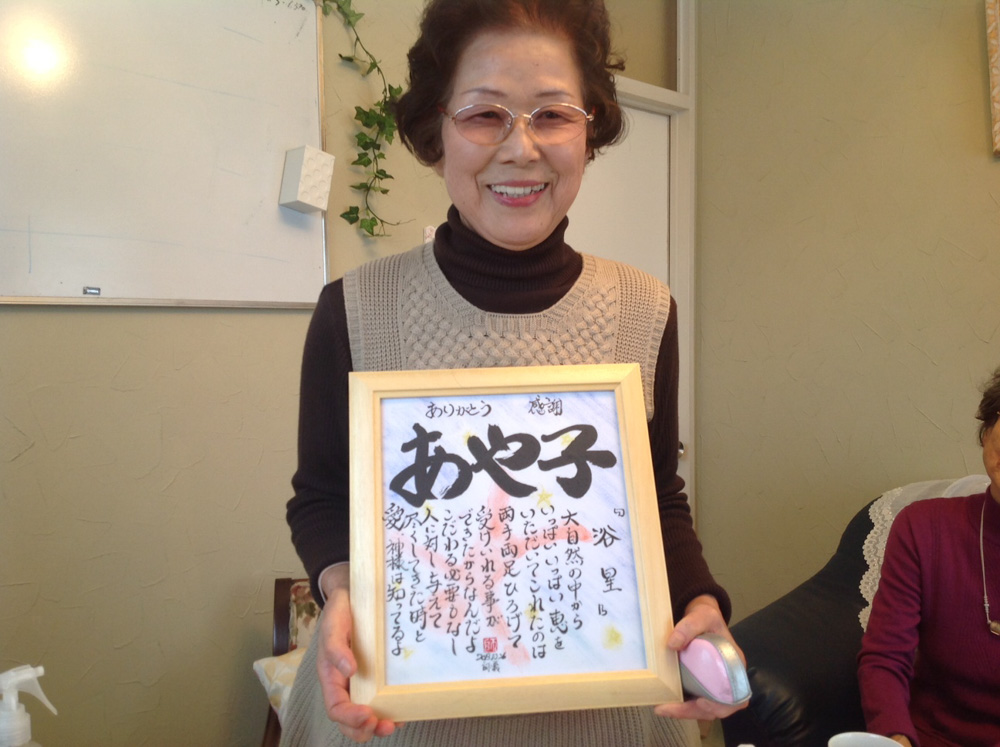 ありがとう　感謝
あや子
『浴星』
大自然の中から
いっぱいいっぱい恵を
いただいてこれたのは
両手両足ひろげて
受けいれる事が
できたからなんだよ
こだわる必要もなし
人に対し与えて
尽くしてきた時と
愛、神様は知ってるよ